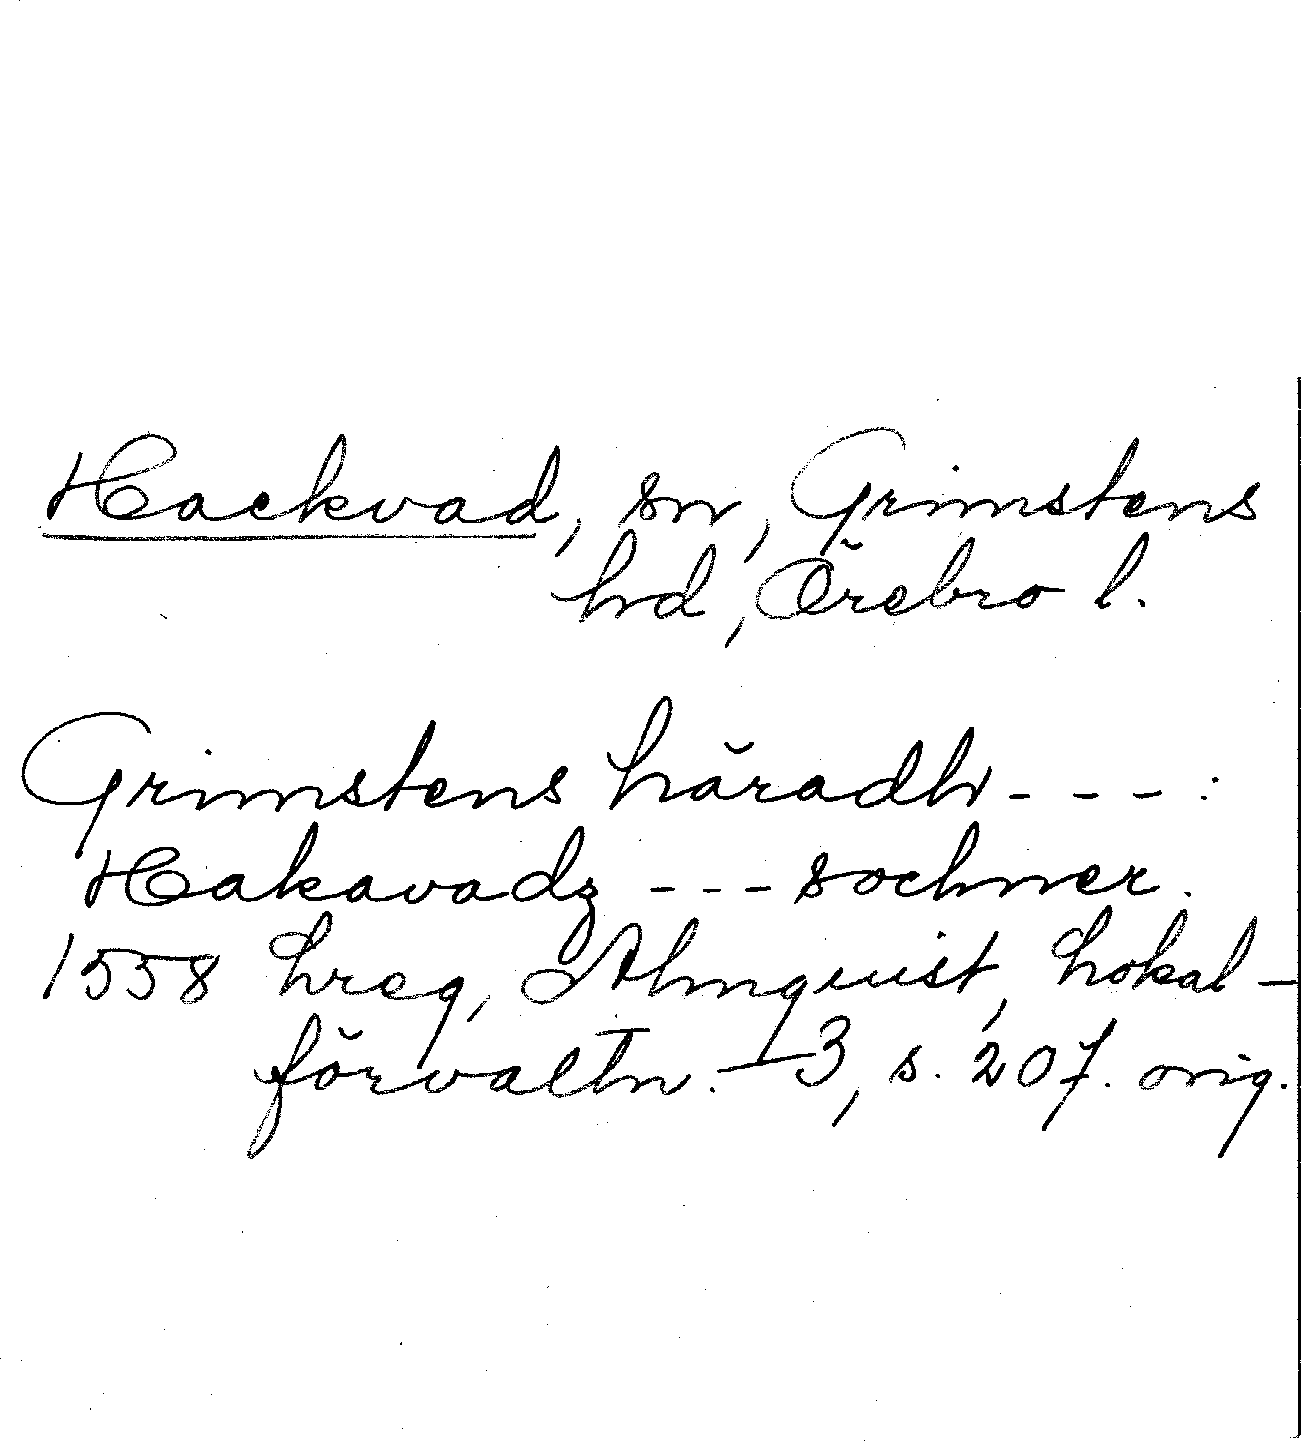 Hackvad, sn, Grimstens
hd, Örebro l.
Grimstens häradh - - - :
Hakavadz - - - sochner.
1558 hreg, Almquist, Lokal-
förvaltn. I3, s. 207. orig.